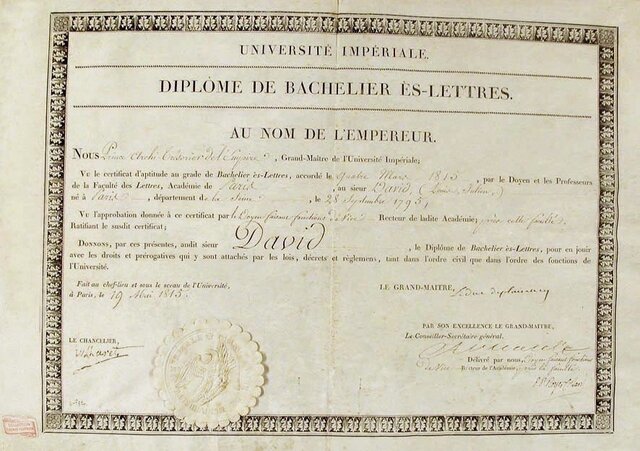 UNIVERSITÉ IMPÉRIALE.
DIPLÔME DE BACHELIER ÈS-LETTRES.
AU NOM DE L'EMPEREUR.
NOUS Prince Archi-Trésorier de l'Empire, Grand-Maître de l'Université Impériale;
Vu le certificat d'aptitude au grade de Bachelier ès-Lettres, accordé le quatre Mars 1815, par le Doyen et les Professeurs
de la Faculté des Lettres, Académie de Paris au sieur David, (Louis Julien)
né à Paris, département de la Seine, le 28 Septembre 1795;
Vu l'approbation donnée à ce certificat par le Doyen faisant fonctions de Vice Recteur de ladite Académie; près cette faculté,
Ratifiant le susdit certificat;
DONNONS, par ces présentes, audit sieur David le Diplôme de Bachelier ès-Lettres, pour en jouir
avec les droits et prérogatives qui y sont attachés par les lois, décrets et règlemens, tant dans l'ordre civil que dans l'ordre des fonctions de
l'Université.
Fait au chef-lieu et sous le sceau de l'Université,
à Paris, le 19 Mai 1815.
LE GRAND-MAITRE,
PAR SON EXCELLENCE LE GRAND-MAITRE,
Le Conseiller-Secrétaire général.
LE CHANCELIER,
Délivré par nous, Doyen faisant fonctions
de Vice Recteur de l'Académie, près la faculté.